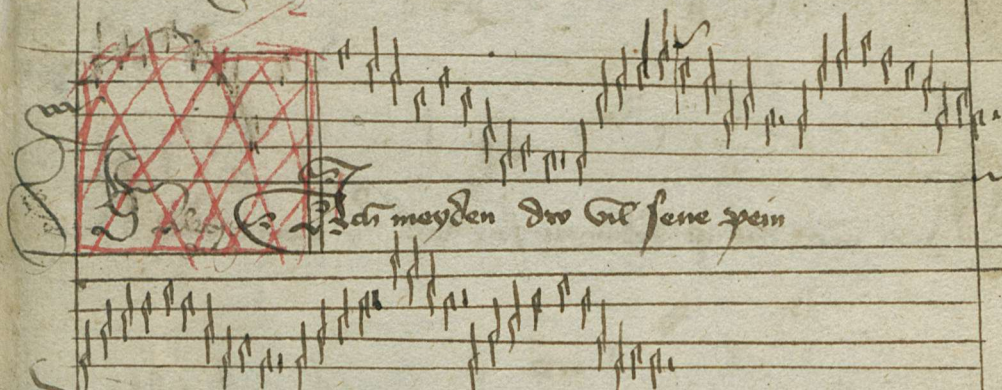 Ich meyden dw vil sene pein